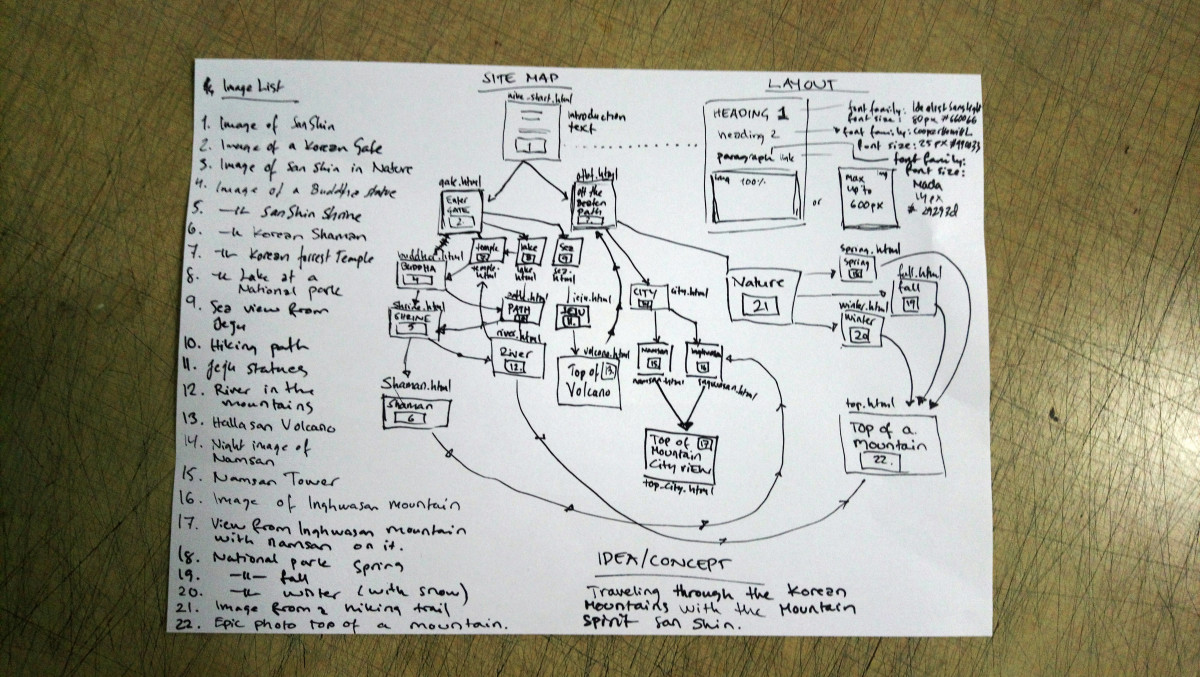 Image List
1. Image of SanShin
2. Image of a Korean Gate
3. Image of San Shin in Nature
4. Image of a Buddha statue
5. -11- SanShin Shrine
6. -11- Korean Shaman
7. -11- Korean forrest Temple
8. -11- Lake at a
National park
9. Sea view from
Jeju
10. Hiking path
11. Jeju statues
12. River in the
mountains
13. Hallasan Volcano
14. Night image of
Namsan
15. Namsan Tower
16. Image of Inghwasan mountain
17. View from Inghwasan mountain
with namsan on it.
18. National park Spring
19. -11- fall
20. -11- winter (with snow)
21. Image from a hiking trail
22. Epic photo top of a mountain.
SITE MAP
start.html
1
introduction
text
gate.html
Enter
GATE
2
off the
Beaten
Path
temple
temple.html
lake
8
lake.html
Sea
9
sea.html
buddha.html
BUDDHA
4
Shrine.html
SHRINE
5
PATH
jeju.html
JEJU
11
river.html
River
12.
volcano.html
Top of 13.
Volcano
CITY
city.html
Namsan
15
namsan.html
Inghwasan
16
Shaman.html
Shaman
6
Top of 17
Mountain
City view
top_city.html
Nature
21
spring.html
Spring
18
fall.html
fall
19
winter.html
Winter
20
top.html
Top of a
Mountain
22.
LAYOUT
HEADING 1
heading 2
paragraph link
img 100%
or
img
Max
up to
600px
font family:
font size: 80px #660066
font family:
font size: 25px
font family:
font size:
Mada
14px
#29293d
IDEA/CONCEPT
Traveling through the Korean
Mountains with the Mountain
Spirit San Shin.